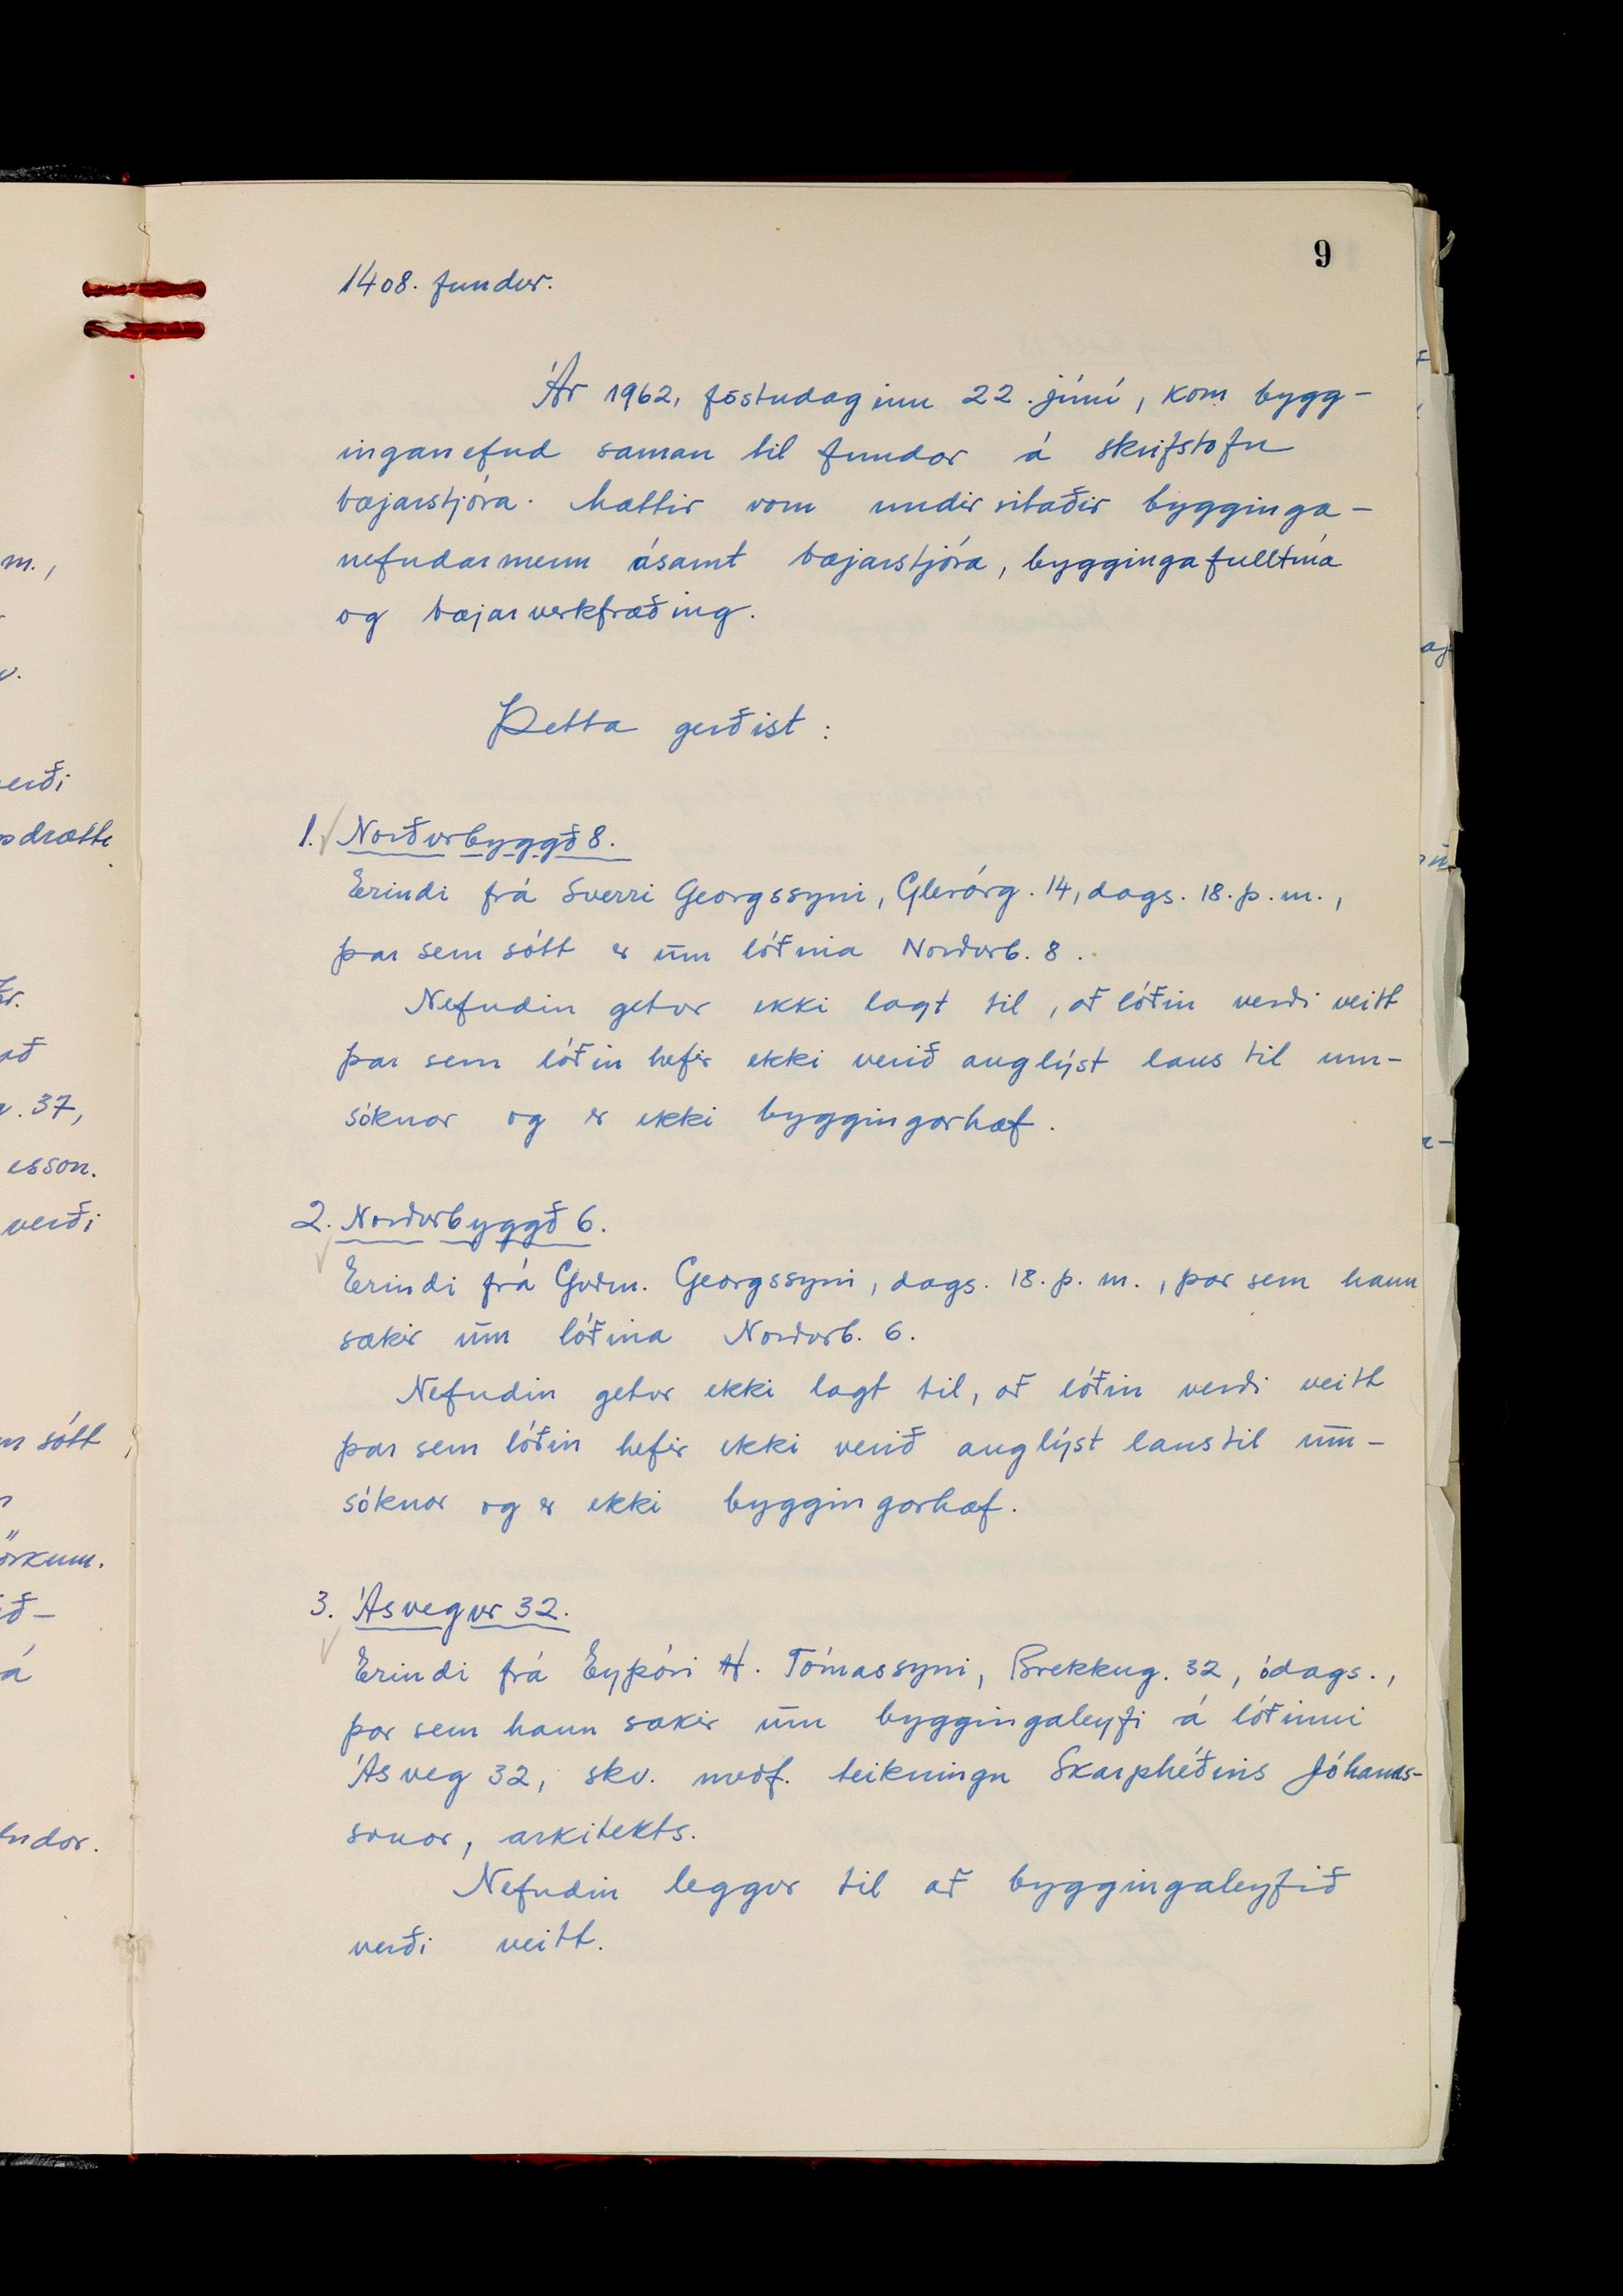 9
1408. fundur.
Ár 1962, föstudaginn 22. júní, kom bygg-
inganefnd saman til fundar á skrifstofu
bæjarstjóra. Mættir vom undirritaðir bygginga-
nefndarmenn ásamt bæjarstjóra, byggingafulltrúa
og bæjarverkfræðing.
Þetta gerðist:
1. Norðurbyggð 8.
Erindi frá Sverri Georgssyni, Glerárg. 14, dags. 18. þ. m.,
þar sem sótt er um lóðina Norðurb. 8.
Nefndin getur ekki lagt til, að lóðin verði veitt
þar sem lóðin hefir ekki verið auglýst laus til um-
sóknar og er ekki byggingarhæf.
2. Norðurbyggð 6.
Erindi frá Guðm. Georgssyni, dags. 18. þ. m., þar sem hann
sækir um lóðina Norðurb. 6.
Nefndin getur ekki lagt til, að lóðin verði veitt
þar sem lóðin hefir ekki verið auglýst laus til um-
sóknar og er ekki byggingarhæf.
3. Ásvegur 32.
Erindi frá Eyþóri H. Tómassyni, Brekkug. 32, ódags.,
þar sem hann sækir um byggingaleyfi á lóðinni
Ásveg 32, skv. meðf. teikningu Skarphéðins Jóhanns-
sonar, arkitekts.
Nefndin leggur til að byggingaleyfið
verði veitt.